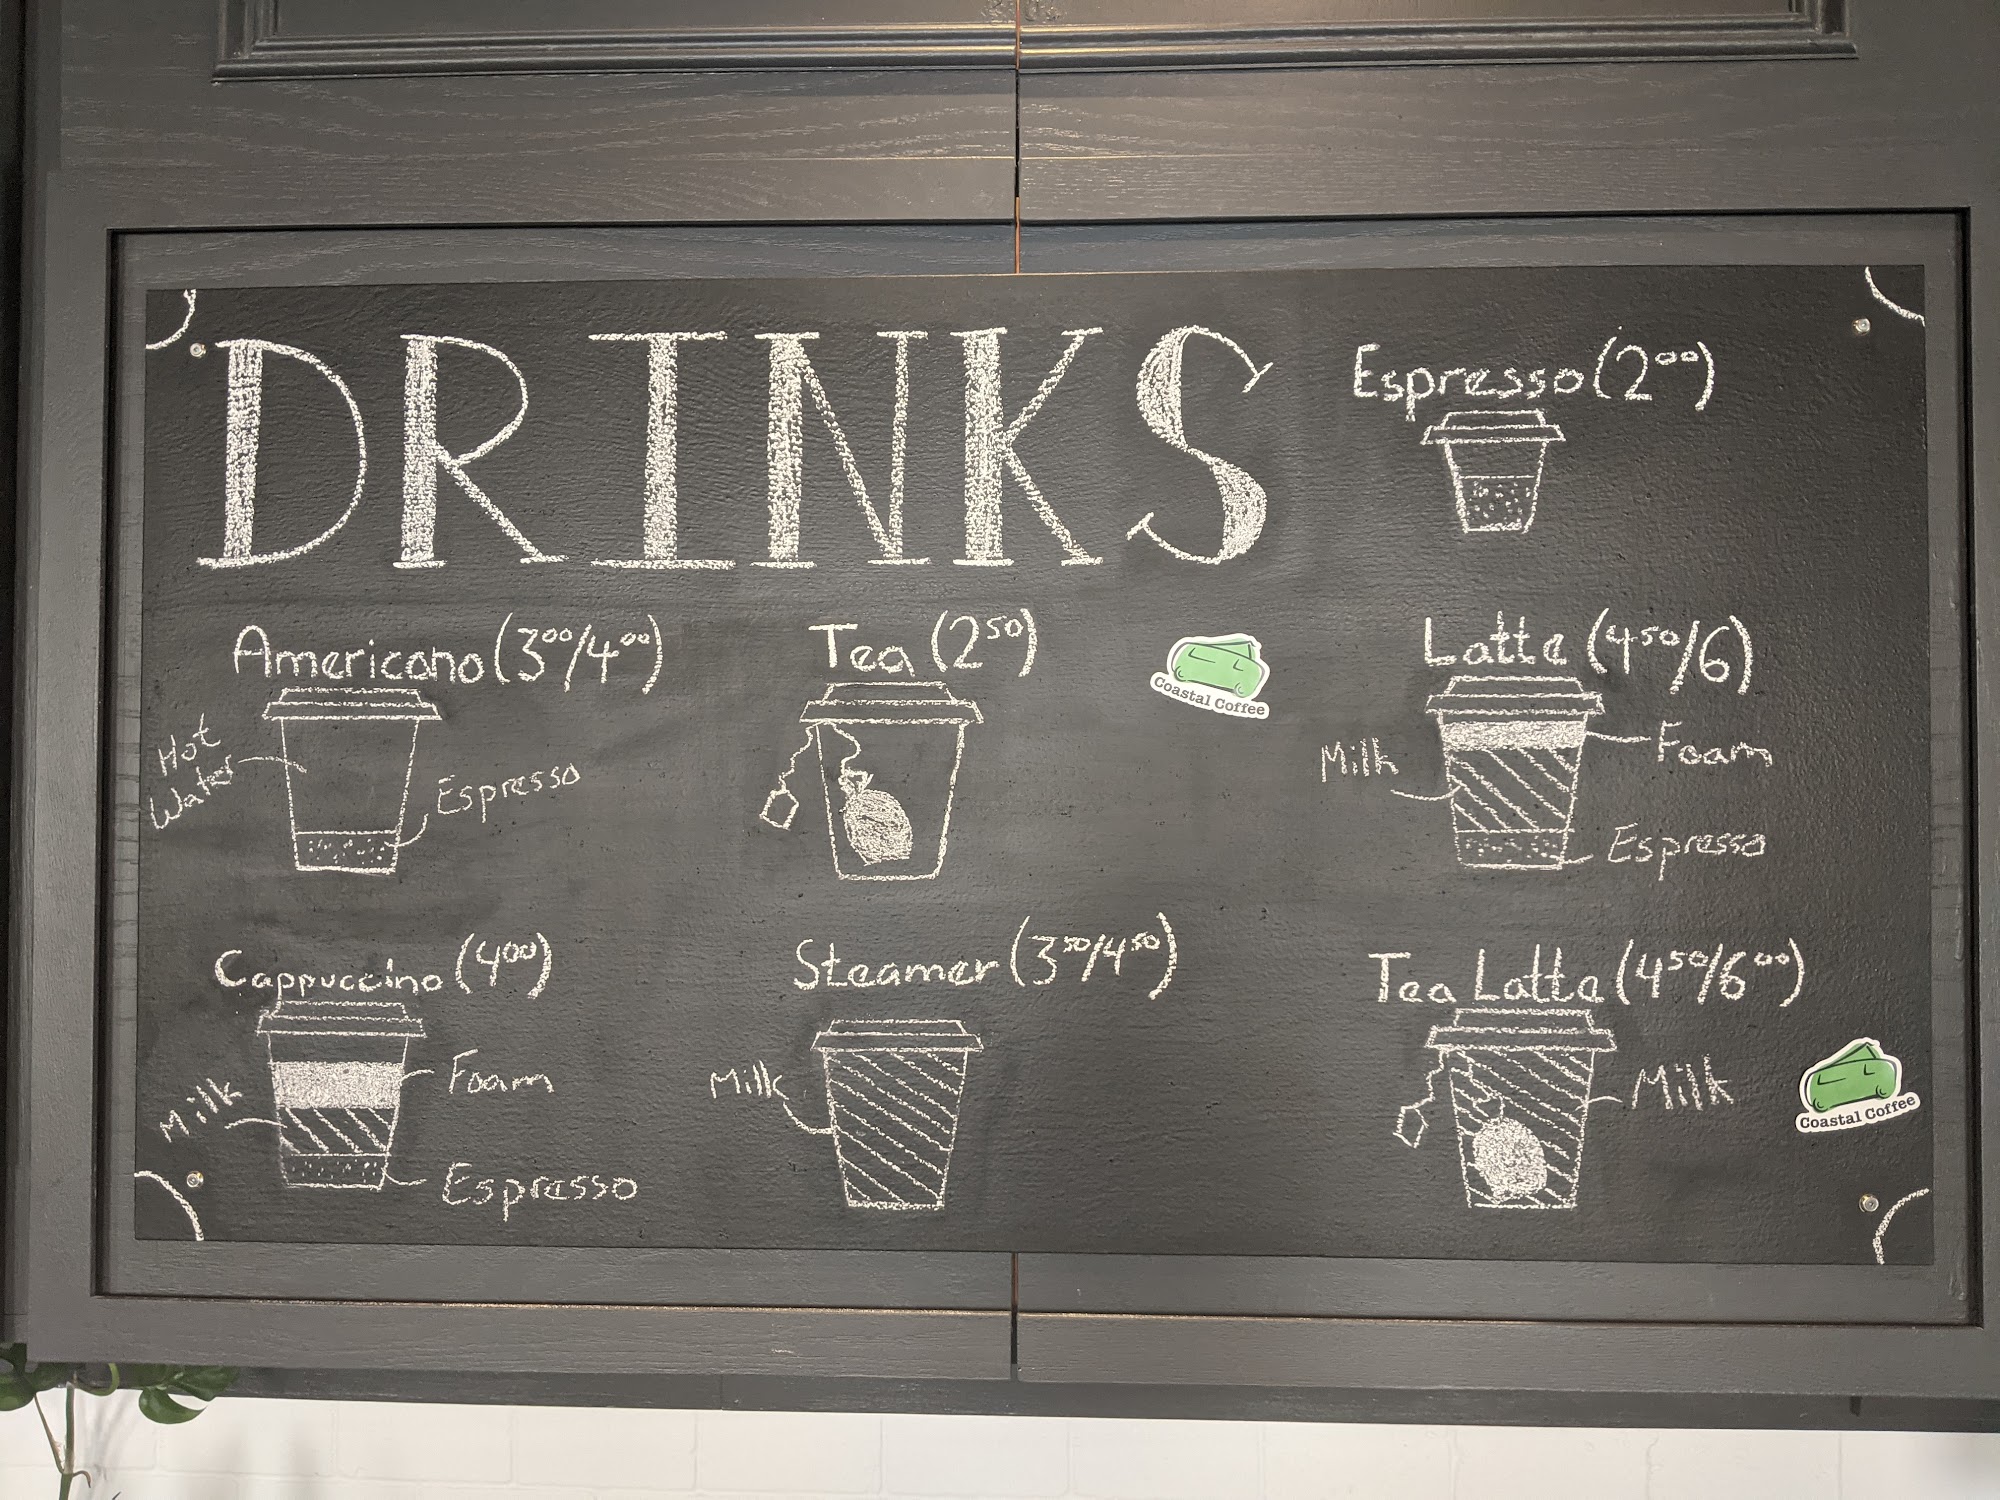 DRINKS
Espresso (2⁰⁰)
Americano (3⁰⁰/4⁰⁰)
Hot
Water
Espresso
Tea (2⁵⁰)
Coastal Coffee
Latte (4⁵⁰/6)
Milk
Foam
Espresso
Cappuccino (4⁰⁰)
Foam
Milk
Espresso
Steamer (3⁵⁰/4⁵⁰)
Milk
Tea Latte (4⁵⁰/6⁰⁰)
Milk
Coastal Coffee